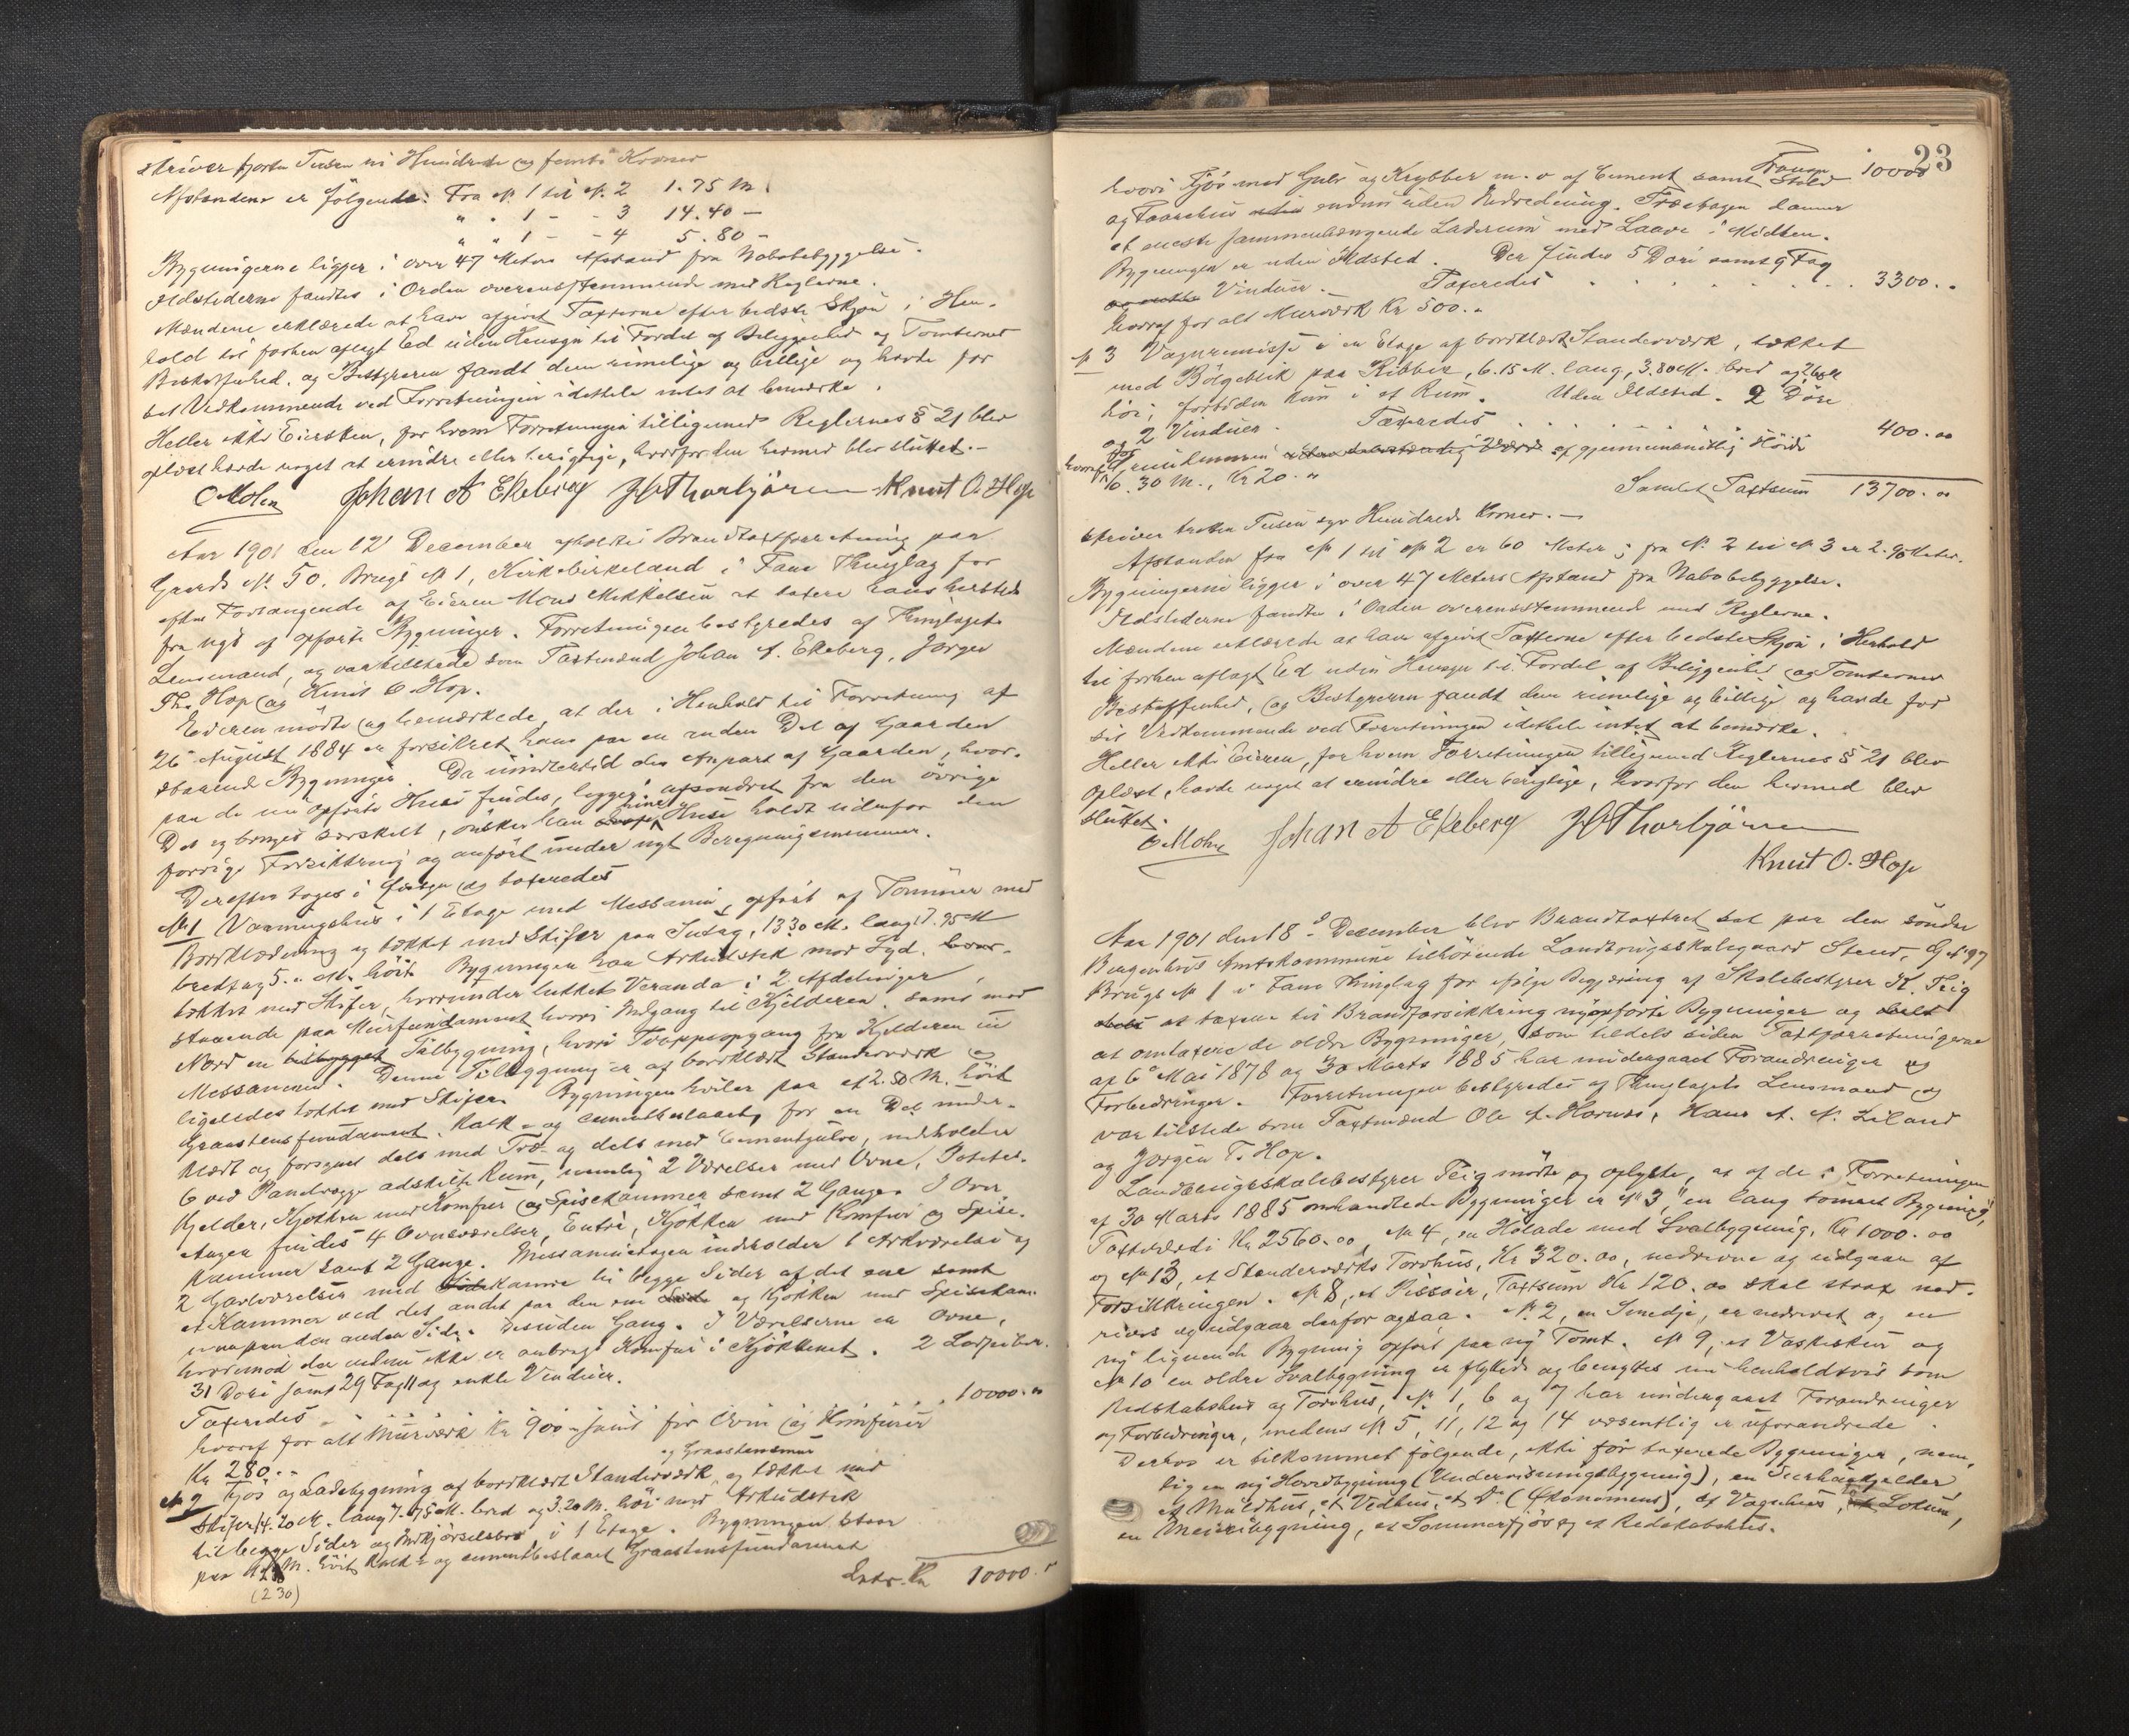 skriver fjorten Tusen ni Hundrede og femti Kroner
Afstandene er følgende: Fra № 1 til № 2 1.75 M.
" " 1 - - 3 14.40 -
" " 1 - - 4 5.80 -
Bygningerne ligger i over 47 Meters Afstand fra Nabobebyggelse.
Ildstederne fandtes i Orden overensstemmende med Reglerne.
Mændene erklærede at have afgivet Taxterne efter bedste Skjøn i Hen-
hold til forhen aflagt Ed uden Hensyn til Fordel af Beliggenhed og Tomternes
Beskaffenhed, og Bestyreren fandt dem rimelige og billige og havde for
sit Vedkommende ved Forretningen idethele intet at bemærke.
Heller ikke Eiersken, for hvem Forretningen tilligemed Reglernes § 21 blev
oplæst havde noget at erindre eller berigtige, hvorfor den hermed blev sluttet.-
O Mohn Johan A Ekeberg J T Thorbjörnsen Knut O. Hop
Aar 1901 den 12 December afholdtes Brandtaxtforretning paa
Gaards № 50. Brugs № 1, Kirkebirkeland i Fane Thinglag for
efter Forlangende af Eieren Mons Mikkelsen at taxere hans hersteds
fra nyt af opførte Bygninger. Forretningen bestyredes af Thinglagets
Lensmand, og var tilstede som Taxtmænd Johan A. Ekeberg, Jørgen
Th. Hop og Knut O. Hop.
Eieren mødte og bemærkede, at der i Henhold til Forretning af
26 August 1884 er forsikret hans paa en anden Del af Gaarden
staaende Bygninger. Da imidlertid den Anpart af Gaarden, hvor-
paa de nu opførte Huse findes, ligger afsondret fra den övrige
Del og bruges særskilt, önsker han hine Huse holdt udenfor den
forrige Forsikring og anført under nyt Beregningsnummer.
Derefter toges i Øiesyn og taxeredes
№ 1 Vaaningshus i 1 Etage med Messanin, opført af Tømmer med
Bordklædning og tækket med Skifer paa Sutag, 13.30 M. langt 7.95 M
bredt og 5." M. höit. Bygningen har Arkudstik mod Syd,
tækket med Skifer, hvorunder lukket Veranda i 2 Afdelinger,
staaende paa Murfundament hvori Nedgang til Kjelderen, samt mod
Nord en Tilbygning, hvori Trappeopgang fra Kjelderen til
Messaninen. Denne Tilbygning er af bordklædt Standerværk og
ligeledes tækket med Skifer. Bygningen hviler paa et 2.50 M. höit
Graastensfundament. Kalk- og cementbeslaaet, for en Del under-
klædt og forsynet dels med Træ- og dels med Cementgulve, indeholder
6 ved Panelvægge adskilte Rum, nemlig 2 Værelser med Ovne, Potetes-
kjelder, Kjøkken med Komfur og Spisekammer samt 2 Gange. I Over
Etagen findes 4 Ovnsværelser, Entré, Kjökken med Komfur og Spise-
kammer samt 2 Gange. Messaninetagen indeholder 1 Arkværelse og
2 Gavlværelser med kamre til begge Sider af det ene samt
et Kammer ved det andet paa den ene og Kjøkken med Spisekam-
mer paa den anden Side. Desuden Gang. I Værelserne er Ovne,
hvorimod der endnu ikke er anbragt Komfur i Kjökkenet. 2 Lofpiber.
31 Döre samt 29 Fag og enkle Vinduer.
Taxeredes . . . . . . 10000."
hvoraf for alt Murværk Kr 900 - samt for Ovne og Komfurer
Kr 280.-
og Graastensmur
№ 2 Fjös og Ladebygning af bordklædt Standerværk og tækket med
Skifer, 14.20 M. lang 7.75 M. bred og 3.20 M. höi med Arkudstik
til begge Sider og Indkjørselsbro, i 1 Etage. Bygningen staar
paa M. höit Kalk- og cementbeslaaet Graastensfundament
(2 30)
Later. Kr 10000."
23
Transp. 10000
hvori Fjös med Gulv og Krybber m. v af Cement samt Stald
og Faarehus endnu uden Indredning. Træetagen danner
et eneste sammenhængende Laderum med Laave i Midten.
Bygningen er uden Ildsted. Der findes 5 Döre samt 9 Fag
Vinduer. Taxeredes . . . . . . 3300."
hvoraf for alt Murværk Kr 500.-
№ 3 Vognremisse i en Etage af bordklædt Standerværk, tækket
med Bölgeblik paa Ribber, 6.15 M. lang, 3.80 M. bred og
höi; fortiden kun i et Rum. Uden Ildsted. 2 Döre
og 2 Vinduer. Taxeredes . . . . . 400."
af gjennemsnitlig Höide
0.30 M., Kr 20."
Samlet Taxtsum 13700."
skriver tretten Tusen syv Hundrede Kroner.-
Afstanden fra № 1 til № 2 er 60 Meter; fra № 2 til № 3 er 2.90 Meter.
Bygningerne ligger i over 47 Meters Afstand fra Nabobebyggelse.
Ildstederne fandtes i Orden overensstemmende med Reglerne.
Mændene erklærede at have afgivet Taxterne efter bedste Skjön i Henhold
til forhen aflagt Ed uden Hensyn til Fordel af Beliggenhed og Tomternes
Beskaffenhed, og Bestyreren fandt dem rimelige og billige og havde for
sit Vedkommende ved Forretningen idethele intet at bemærke.
Heller ikke Eieren, for hvem Forretningen tilligemed Reglernes § 21 blev
oplæst, havde noget at erindre eller berigtige, hvorfor den hermed blev
sluttet.
O Mohn Johan A Ekeberg J T Thorbjörnsen
Knut O. Hop
Aar 1901 den 18de December blev Brandtaxtret sat paa den söndre
Bergenhus Amtskommune tilhörende Landbrugsskolegaard Stend, G № 97
Brugs № 1 i Fane Thinglag for ifølge Begjæring af Skolebestyrer K. Teig
at taxere til Brandforsikkring nyopførte Bygninger og
at omtaxere de ældre Bygninger, som tildels siden Taxtforretningerne
af 6te Mai 1878 og 30 Marts 1885 har undergaaet Forandringer og
Forbedringer. Forretningen bestyredes af Thinglagets Lensmand og
var tilstede som Taxtmænd Ole A. Hornæs, Hans A. N. Liland
og Jörgen T. Hop.
Landbrugsskolebestyrer Teig mødte og oplyste, at af de i Forretningen
af 30 Marts 1885 omhandlede Bygninger er № 3, "en lang tömret Bygning",
Taxtværdi Kr 2560.00, № 4, en Hölade med Svalbygning, Kr 1000.00
og № 13, et Standerværks Torvhus, Kr 320.00, nedrevne og udgaar af
Forsikkringen. № 8, et Pissoir, Taxtsum Kr 120.00 skal strax ned-
rives og udgaar derfor ogsaa. № 2, en Smedje, er nedrevet og en
ny lignende Bygning opført paa ny Tomt. № 9, et Vaskeskur og
№ 10 en ældre Svalbygning er flyttede og benyttes nu henholdsvis som
Redskabshus og Torvhus, № 1, 6 og 7 har undergaaet Forandringer
og Forbedringer, medens № 5, 11, 12 og 14 væsentlig er uforandrede.
Derhos er tilkommet følgende, ikke för taxerede Bygninger, nem-
lig en ny Hovedbygning (Undervisningsbygning), en kjelder,
et Muldhus, et Vedhus, et Do (Økonomens), et Vognhus, Lokum,
en Meieribygning, et Sommerfjös og et Redskabshus.